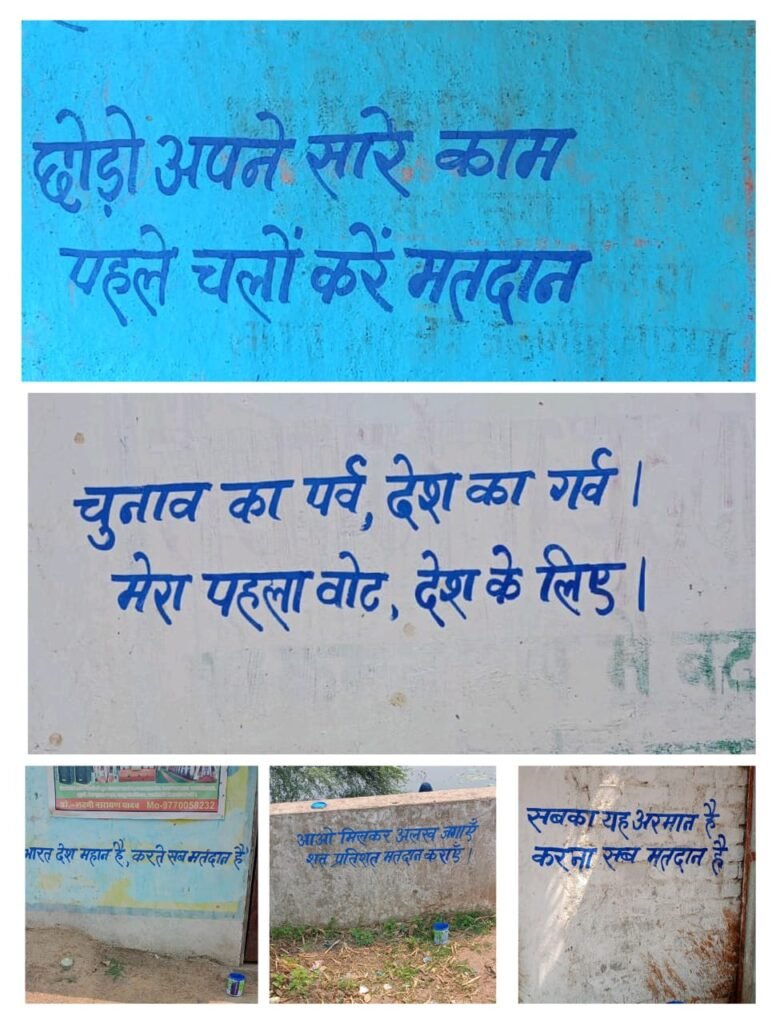 छोड़ो अपने सारे काम
पहले चलों करें मतदान
चुनाव का पर्व, देश का गर्व।
मेरा पहला वोट, देश के लिए।
प्रो.-लक्ष्मी नारायण यादव Mo-9770058232
भारत देश महान है, करते सब मतदान है
आओ मिलकर अलख जगाएँ
शत प्रतिशत मतदान कराएँ।
सबका यह अरमान है
करना सब मतदान है